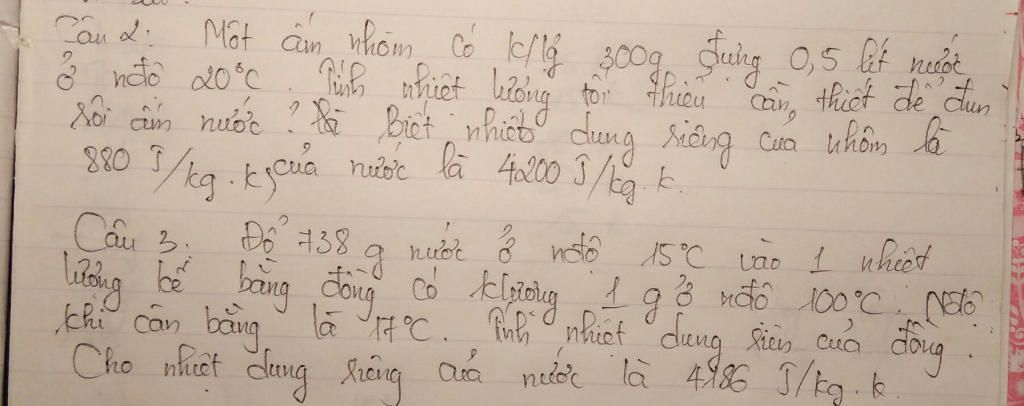 Câu 2: Một ấm nhôm có k/lg 300g đựng 0,5 lít nước
ở nđộ 20°C. Tính nhiệt lượng tối thiểu cần thiết để đun
sôi ấm nước? Biết nhiệt dung riêng của nhôm là
880 J/kg.k, của nước là 4200 J/kg.k.
Câu 3: Đổ 738 g nước ở nđộ 15°C vào 1 nhiệt
lượng kế bằng đồng có klượng 1 g ở nđộ 100°C. Nđộ
khi cân bằng là 17°C. Tính nhiệt dung riên của đồng.
Cho nhiệt dung riêng của nước là 4186 J/kg.k.